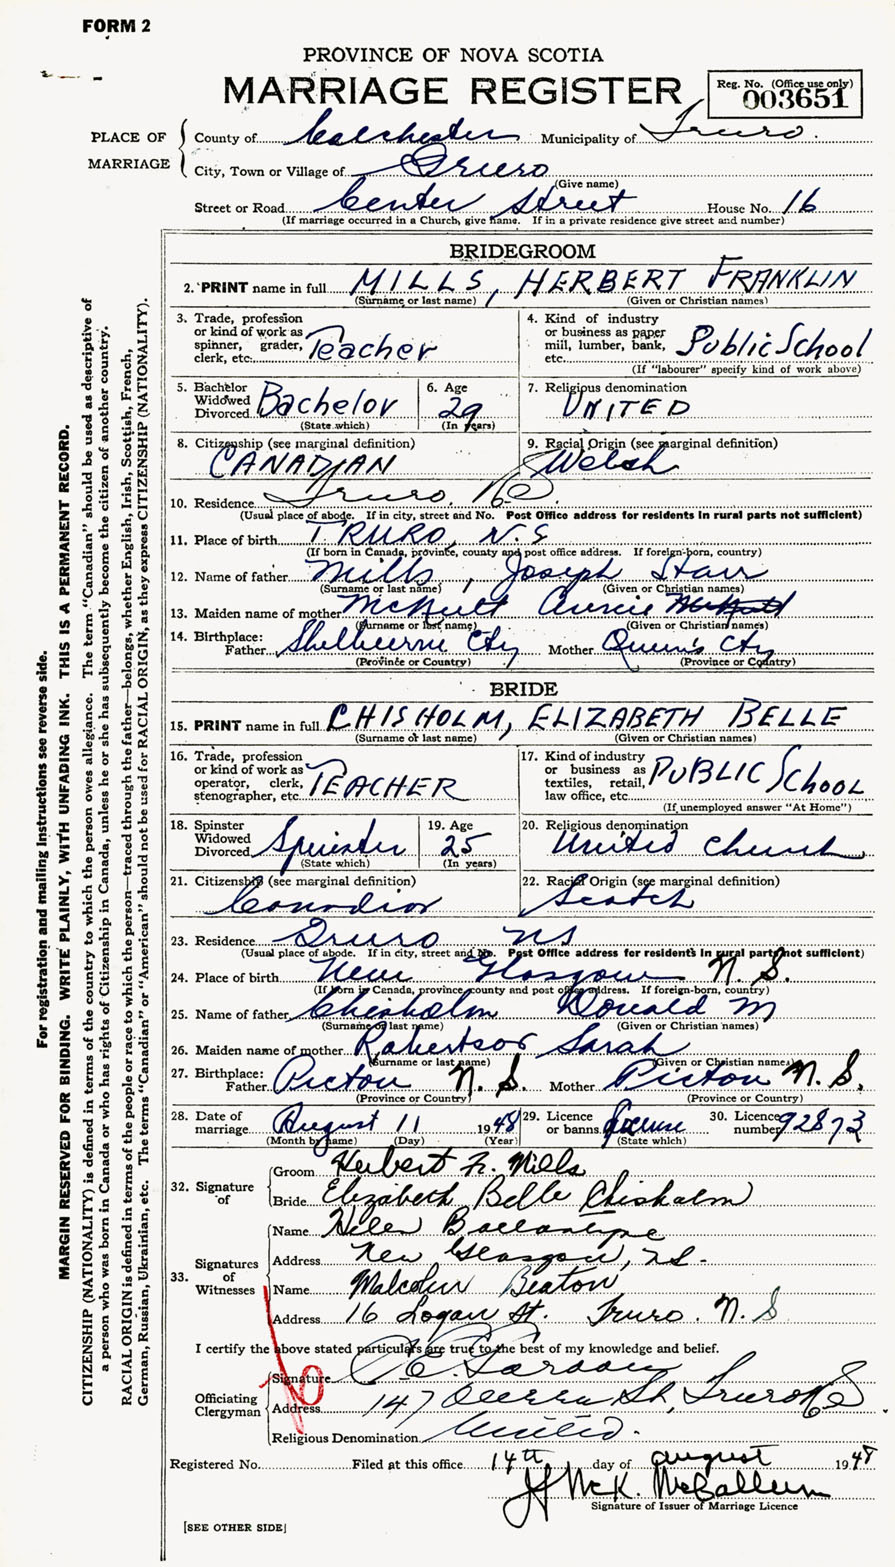 FORM 2
PROVINCE OF NOVA SCOTIA
MARRIAGE REGISTER
Reg. No. (Office use only)
003651
PLACE OF MARRIAGE
County of Colchester Municipality of Truro.
City, Town or Village of Truro
(Give name)
Street or Road Center Street House No. 16
(If marriage occurred in a Church, give name. If in a private residence give street and number)
BRIDEGROOM
2. PRINT name in full MILLS, HERBERT FRANKLIN
(Surname or last name) (Given or Christian names)
3. Trade, profession or kind of work as spinner, grader, clerk, etc. Teacher
4. Kind of industry or business as paper mill, lumber, bank, etc. Public School
(If "labourer" specify kind of work above)
5. Bachelor Widowed Divorced Bachelor
(State which)
6. Age 29
(In years)
7. Religious denomination
UNITED
8. Citizenship (see marginal definition)
CANADIAN
9. Racial Origin (see marginal definition)
Welsh
10. Residence Truro, N.S.
(Usual place of abode. If in city, street and No. Post Office address for residents in rural parts not sufficient)
11. Place of birth TRURO, N.S
(If born in Canada, province, county and post office address. If foreign-born, country)
12. Name of father Mills, Joseph Starr
(Surname or last name) (Given or Christian names)
13. Maiden name of mother McNutt Annie
(Surname or last name) (Given or Christian names)
14. Birthplace:
Father Shelburne Cty Mother Queen's Cty
(Province or Country) (Province or Country)
BRIDE
15. PRINT name in full CHISHOLM, ELIZABETH BELLE
(Surname or last name) (Given or Christian names)
16. Trade, profession or kind of work as operator, clerk, stenographer, etc. TEACHER
17. Kind of industry or business as textiles, retail, law office, etc. PUBLIC SCHOOL
(If unemployed answer "At Home")
18. Spinster Widowed Divorced Spinster
(State which)
19. Age 25
(In years)
20. Religious denomination
United Church
21. Citizenship (see marginal definition)
Canadian
22. Racial Origin (see marginal definition)
Scotch
23. Residence Truro NS
(Usual place of abode. If in city, street and No. Post Office address for residents in rural parts not sufficient)
24. Place of birth New Glasgow N.S.
(If born in Canada, province, county and post office address. If foreign-born, country)
25. Name of father Chisholm Donald M
(Surname or last name) (Given or Christian names)
26. Maiden name of mother Robertson Sarah
(Surname or last name) (Given or Christian names)
27. Birthplace:
Father Pictou N.S. Mother Pictou N.S.
(Province or Country) (Province or Country)
28. Date of marriage August 11 1948
(Month by name) (Day) (Year)
29. Licence or banns License
(State which)
30. Licence number 92873
32. Signature of
Groom Herbert F. Mills
Bride Elizabeth Belle Chisholm
33. Signatures of Witnesses
Name Helen Ballantyne
Address New Glasgow, N.S.
Name Malcolm Beaton
Address 16 Logan St. Truro. N.S
I certify the above stated particulars are true to the best of my knowledge and belief.
Officiating Clergyman
Signature
Address 147 Queen St, Truro NS
Religious Denomination United.
Registered No. Filed at this office 14th day of August 1948
McK. McCallum
Signature of Issuer of Marriage Licence
[SEE OTHER SIDE]
For registration and mailing instructions see reverse side.
MARGIN RESERVED FOR BINDING. WRITE PLAINLY, WITH UNFADING INK. THIS IS A PERMANENT RECORD.
CITIZENSHIP (NATIONALITY) is defined in terms of the country to which the person owes allegiance. The term "Canadian" should be used as descriptive of
a person who was born in Canada or who has rights of Citizenship in Canada, unless he or she has subsequently become the citizen of another country.
RACIAL ORIGIN is defined in terms of the people or race to which the person—traced through the father—belongs, whether English, Irish, Scottish, French,
German, Russian, Ukrainian, etc. The terms "Canadian" or "American" should not be used for RACIAL ORIGIN, as they express CITIZENSHIP (NATIONALITY).